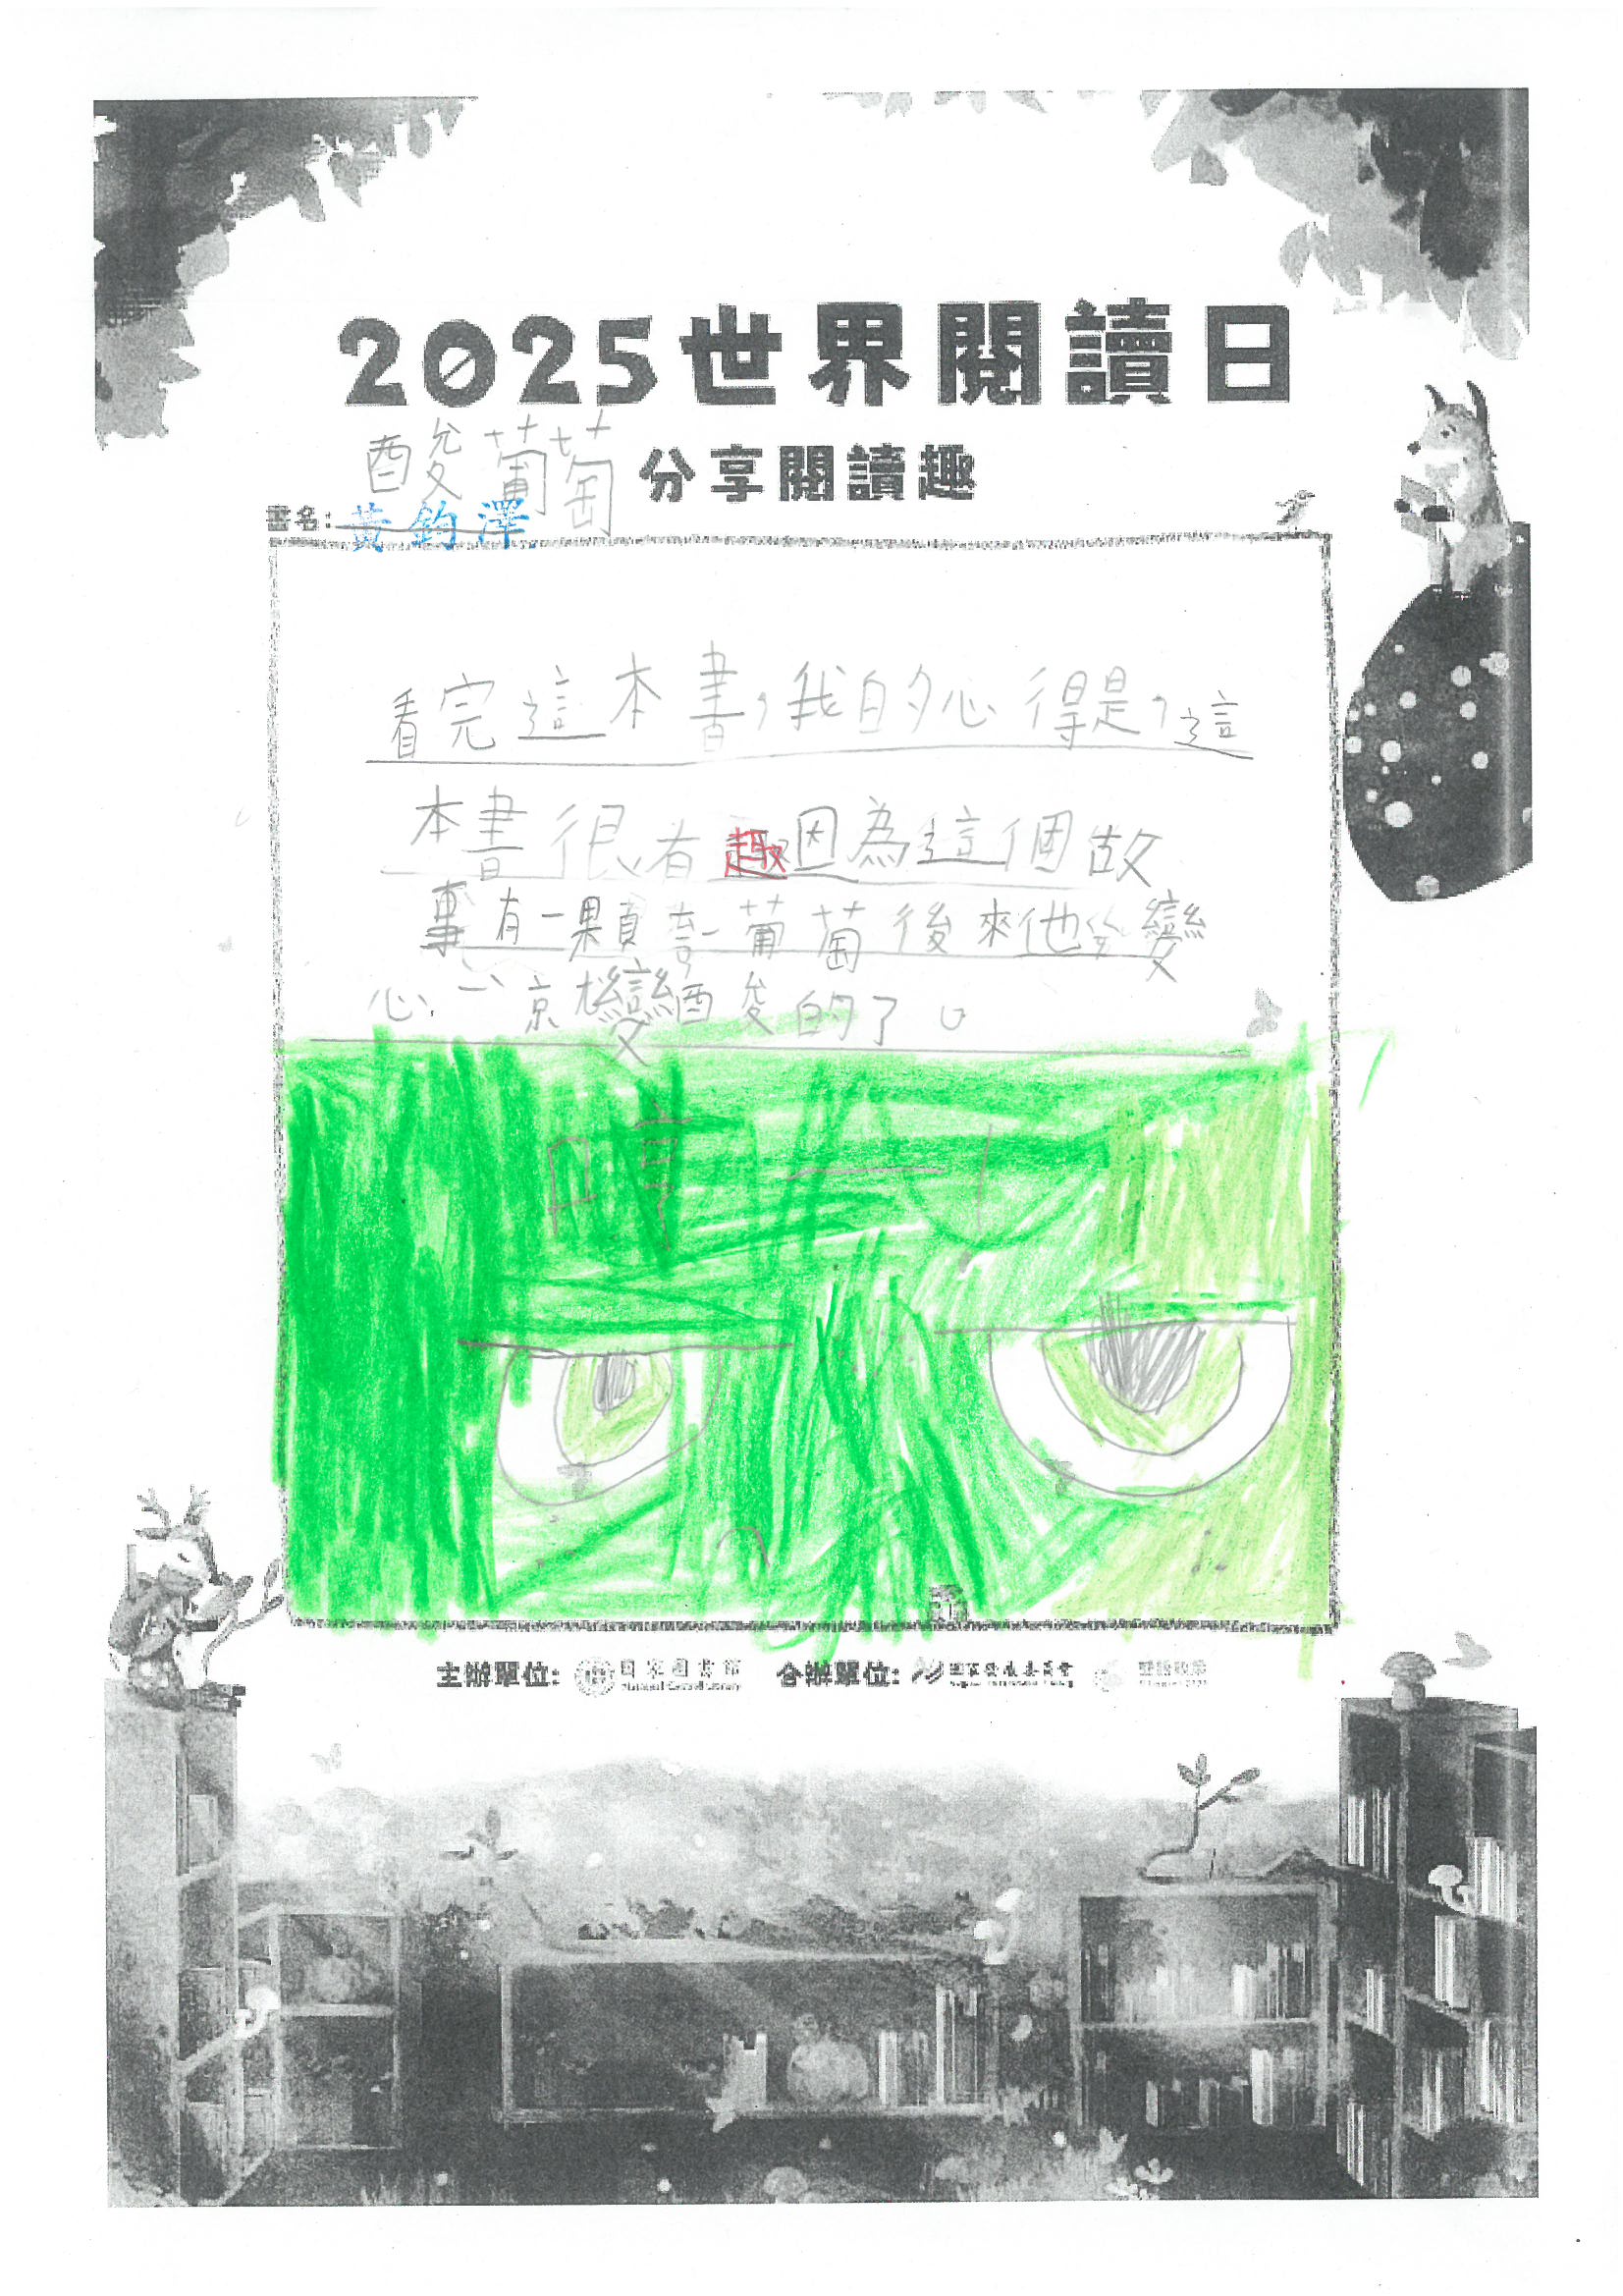 2025世界閱讀日
酸葡萄
分享閱讀趣
書名:黃鈞澤
看完這本書,我的心得是,這
本書很有趣因為這個故
事有一顆 葡萄後來他 變
心 京 變酸的了。
哼
主辦單位: 國家圖書館 合辦單位: 國家發展委員會
National Central Library